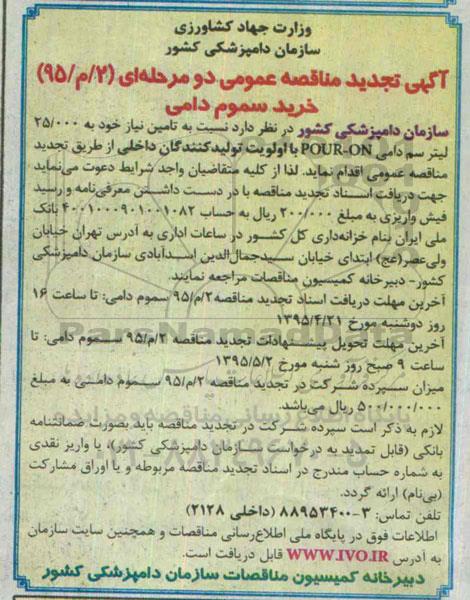 وزارت جهاد کشاورزی
سازمان دامپزشکی کشور
آگهی تجدید مناقصه عمومی دو مرحله‌ای (۲/م/۹۵)
خرید سموم دامی
سازمان دامپزشکی کشور در نظر دارد نسبت به تامین نیاز خود به ۲۵/۰۰۰
لیتر سم دامی POUR-ON با اولویت تولیدکنندگان داخلی از طریق تجدید
مناقصه عمومی اقدام نماید. لذا از کلیه متقاضیان واجد شرایط دعوت می‌نماید
جهت دریافت اسناد تجدید مناقصه با در دست داشتن معرفی‌نامه و رسید
فیش واریزی به مبلغ ۲۰۰/۰۰۰ ریال به حساب ۴۰۰۱۰۰۰۹۰۱۰۰۱۰۸۲ بانک
ملی ایران بنام خزانه‌داری کل کشور در ساعات اداری به آدرس تهران خیابان
ولی‌عصر(عج) ابتدای خیابان سیدجمال‌الدین اسدآبادی سازمان دامپزشکی
کشور- دبیرخانه کمیسیون مناقصات مراجعه نمایند.
آخرین مهلت دریافت اسناد تجدید مناقصه ۲/م/۹۵ سموم دامی: تا ساعت ۱۶
روز دوشنبه مورخ ۱۳۹۵/۴/۲۱
آخرین مهلت تحویل پیشنهادات تجدید مناقصه ۲/م/۹۵ سموم دامی: تا
ساعت ۹ صبح روز شنبه مورخ ۱۳۹۵/۵/۲
میزان سپرده شرکت در تجدید مناقصه ۲/م/۹۵ سموم دامی به مبلغ
۵۰۰/۰۰۰/۰۰۰ ریال می‌باشد.
لازم به ذکر است سپرده شرکت در تجدید مناقصه باید بصورت ضمانتنامه
بانکی (قابل تمدید به درخواست سازمان دامپزشکی کشور)، یا واریز نقدی
به شماره حساب مندرج در اسناد تجدید مناقصه مربوطه و یا اوراق مشارکت
(بی‌نام) ارائه گردد.
تلفن تماس: ۳-۸۸۹۵۳۴۰۰ (داخلی ۲۱۲۸)
اطلاعات فوق در پایگاه ملی اطلاع‌رسانی مناقصات و همچنین سایت سازمان
به آدرس WWW.IVO.IR قابل دریافت است.
دبیرخانه کمیسیون مناقصات سازمان دامپزشکی کشور